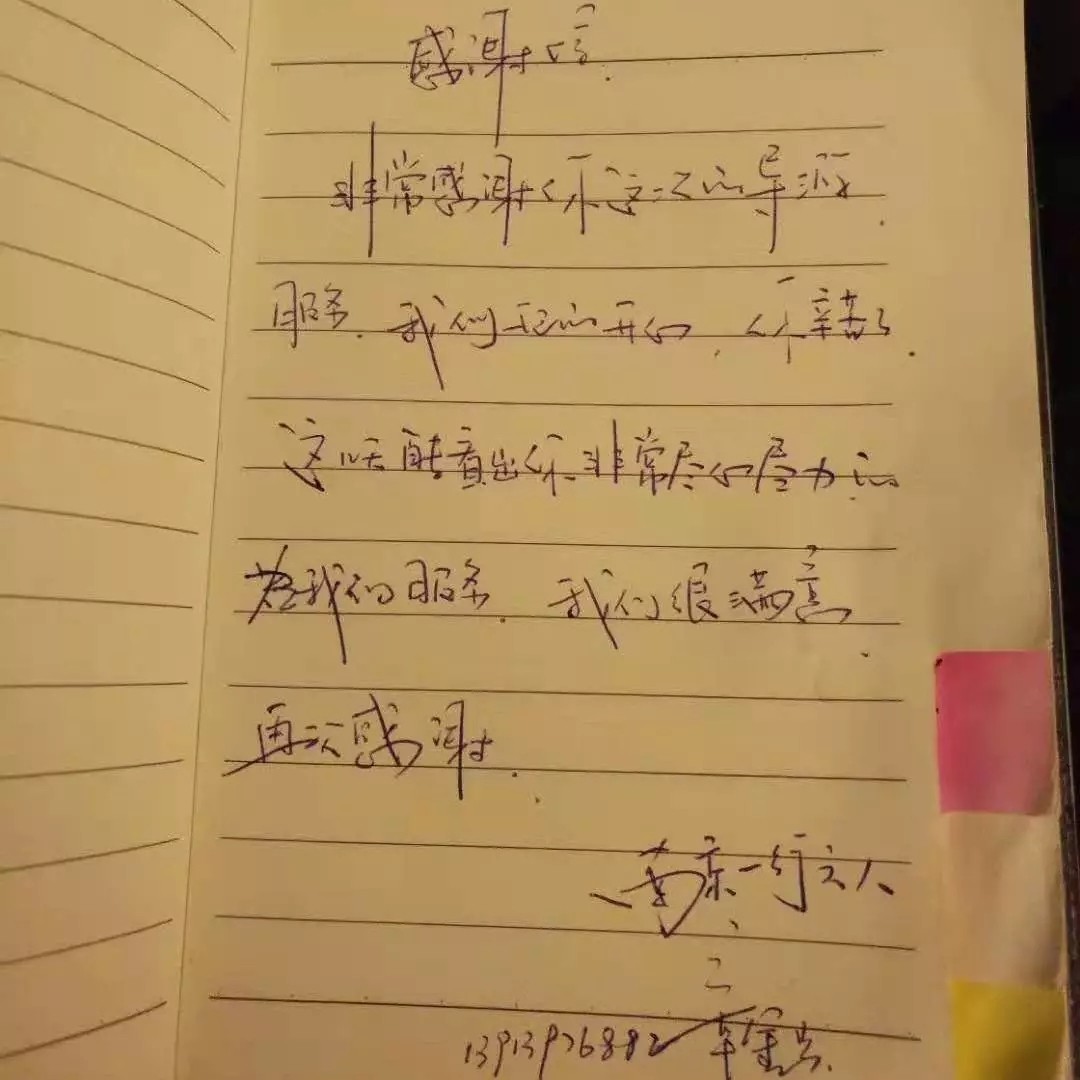 感谢信
非常感谢你这次的导游
服务.我们玩的开心,你辛苦了.
这几天能看出你非常尽心尽力的
为我们服务.我们很满意.
再次感谢.
南京一行六人